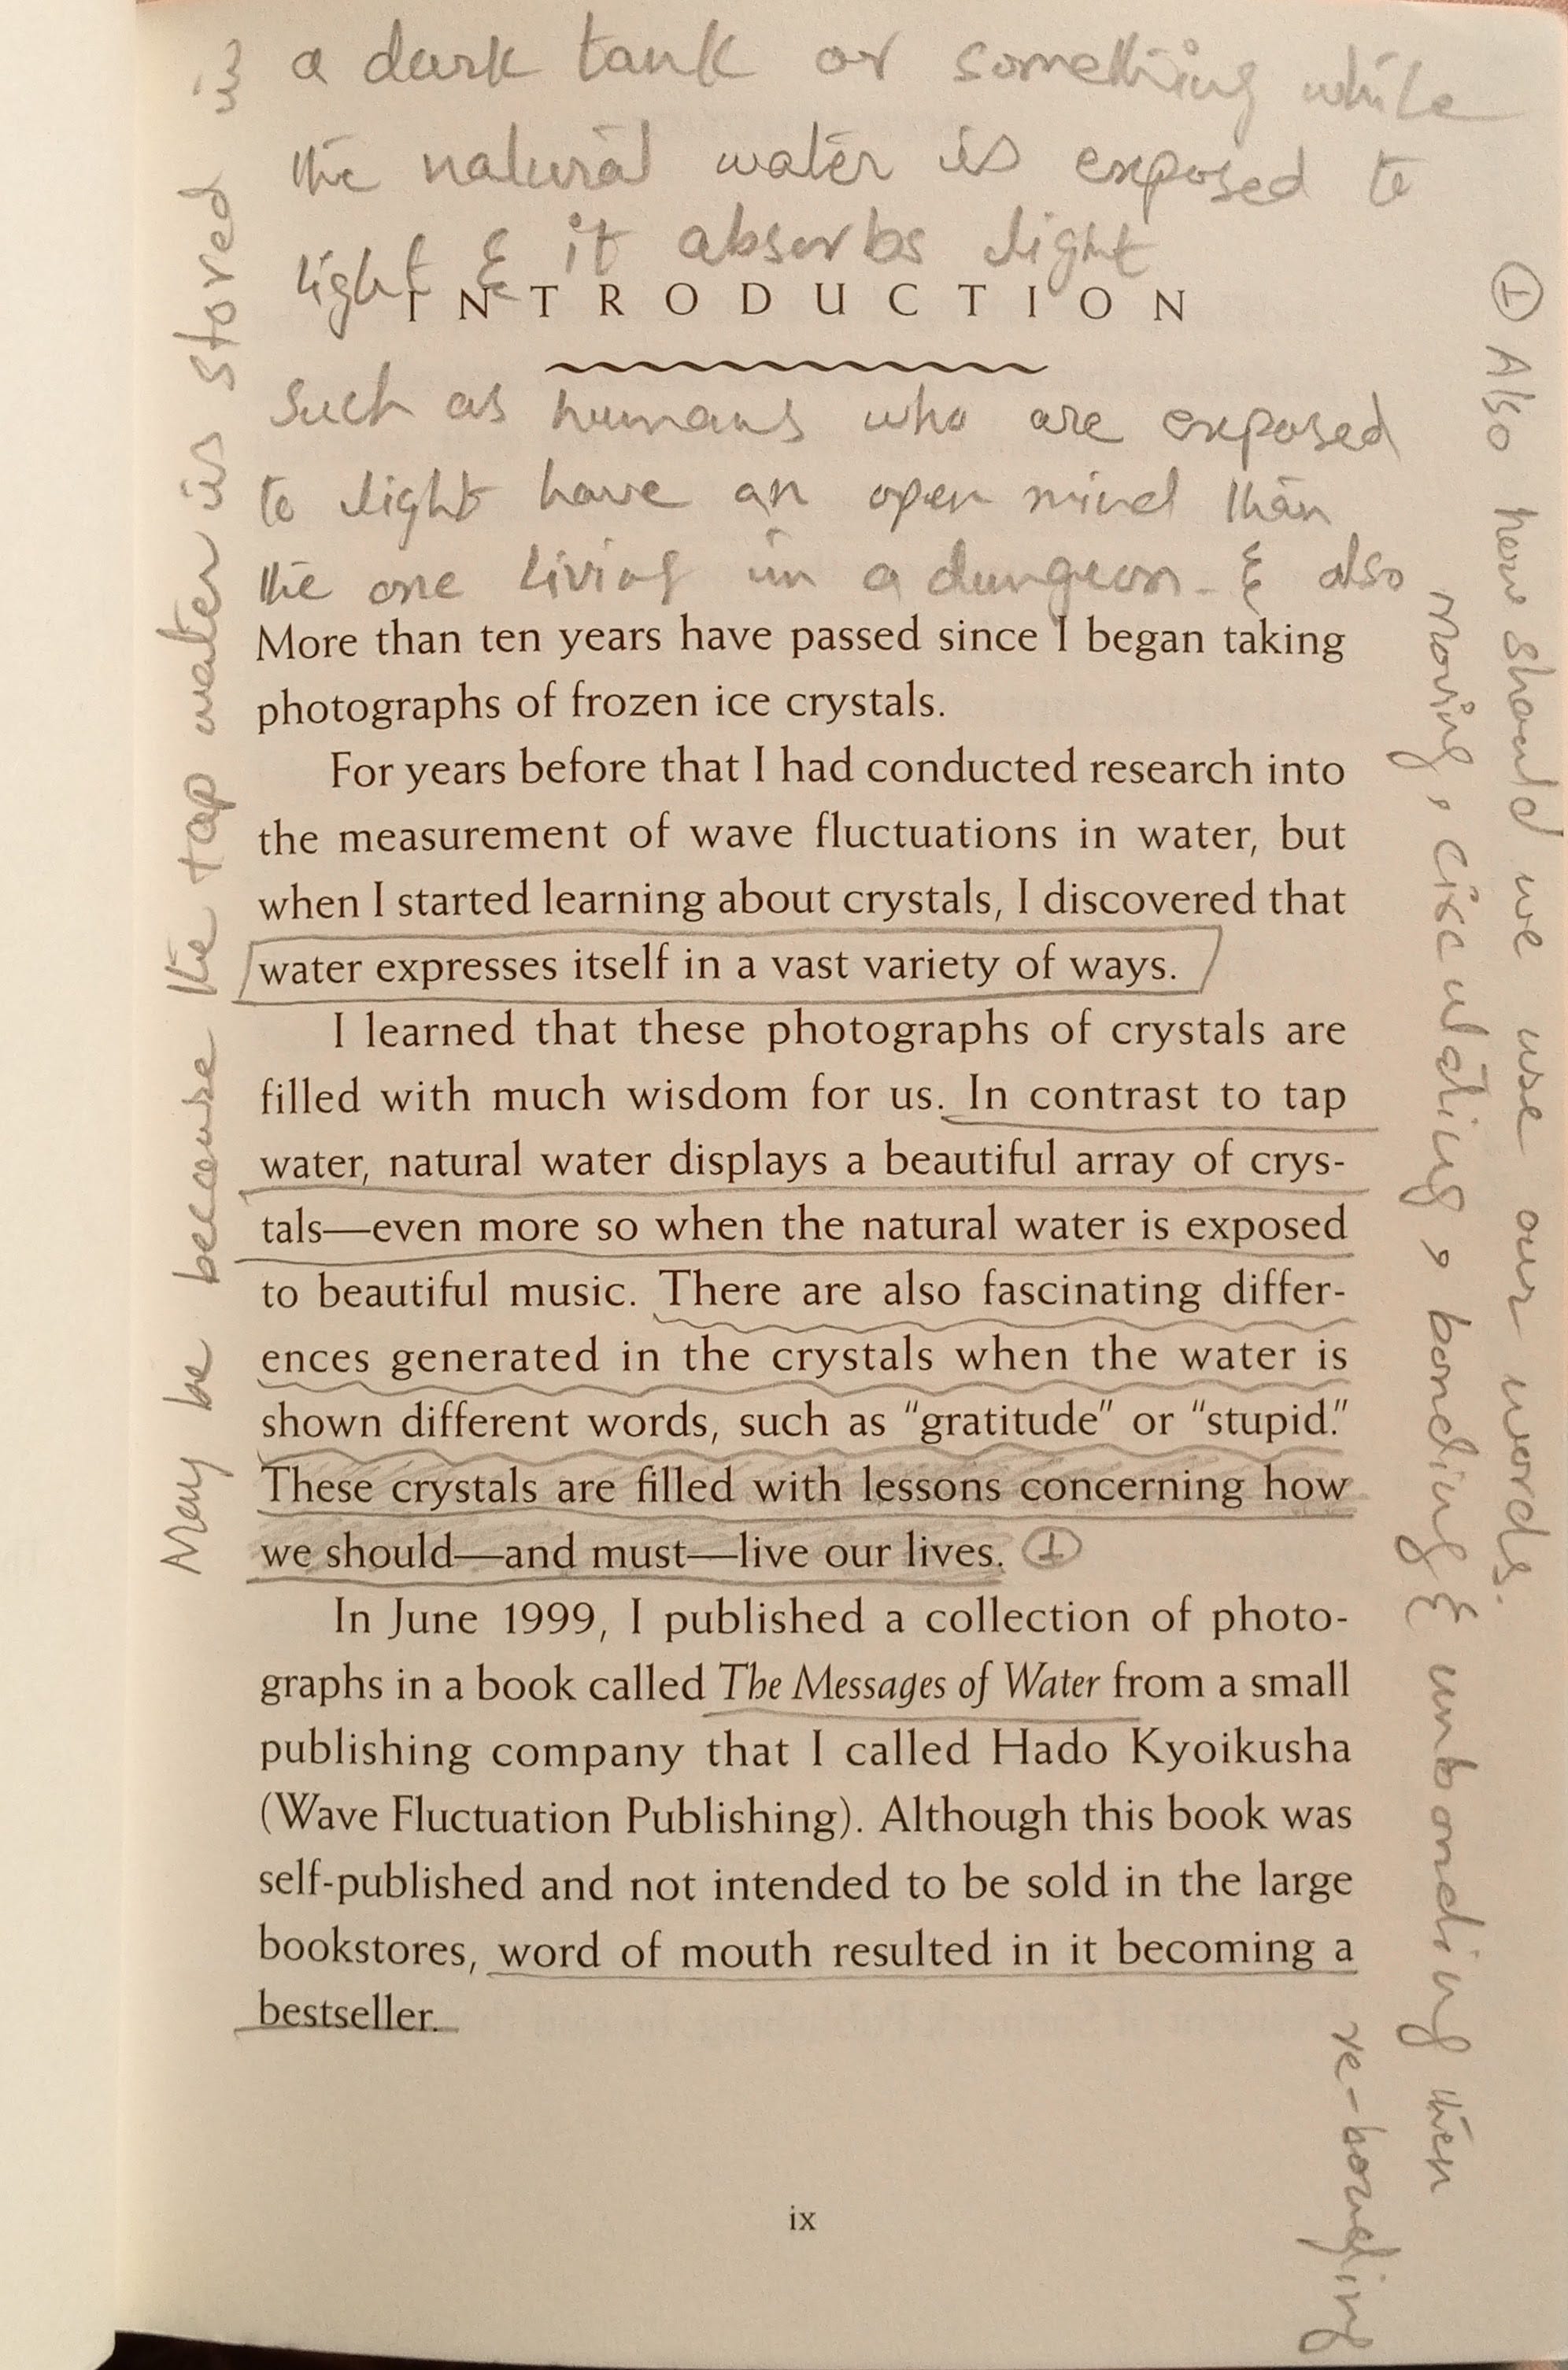 May be because the tap water is stored in
a dark tank or something while
the natural water is exposed to
light & it absorbs light
INTRODUCTION
such as humans who are exposed
to light have an open mind than
the one living in a dungeon. & also
moving, circulating, bonding & unbonding then
re-bonding
① Also how should we use our words.
More than ten years have passed since I began taking
photographs of frozen ice crystals.
For years before that I had conducted research into
the measurement of wave fluctuations in water, but
when I started learning about crystals, I discovered that
water expresses itself in a vast variety of ways.
I learned that these photographs of crystals are
filled with much wisdom for us. In contrast to tap
water, natural water displays a beautiful array of crys-
tals—even more so when the natural water is exposed
to beautiful music. There are also fascinating differ-
ences generated in the crystals when the water is
shown different words, such as “gratitude” or “stupid.”
These crystals are filled with lessons concerning how
we should—and must—live our lives. ①
In June 1999, I published a collection of photo-
graphs in a book called The Messages of Water from a small
publishing company that I called Hado Kyoikusha
(Wave Fluctuation Publishing). Although this book was
self-published and not intended to be sold in the large
bookstores, word of mouth resulted in it becoming a
bestseller.
ix